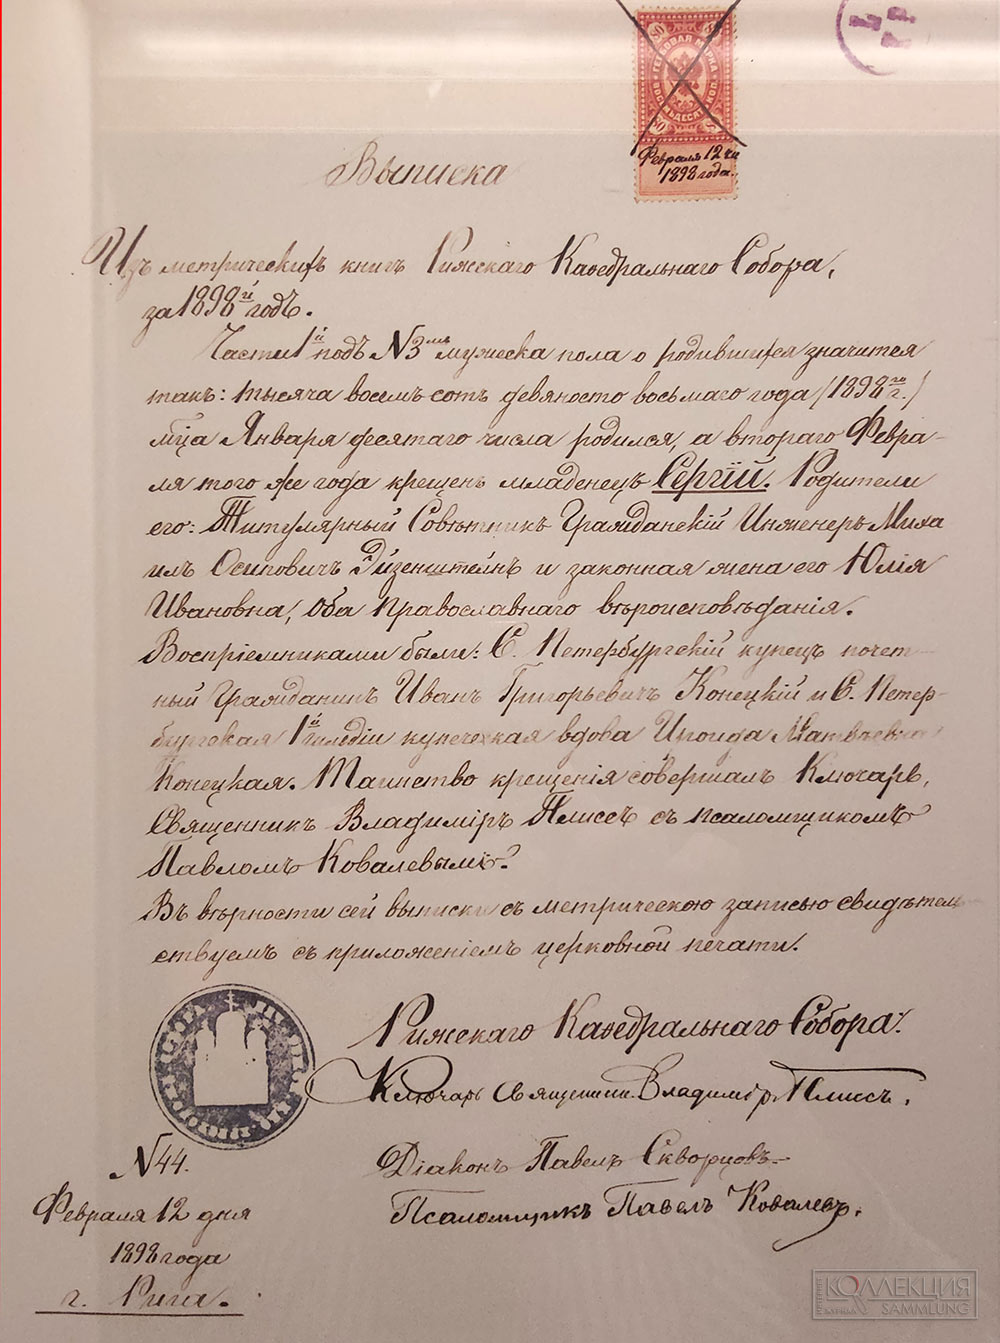 ГЕРБОВАЯ МАРКА
80
ВОСЕМЬДЕСЯТ КОП.
Февраля 12 дн
1898 года.
Выписка
Изъ метрическихъ книгъ Рижскаго Каѳедральнаго Собора,
за 1898й годъ.
Части 1й подъ №3мъ мужеска пола о родившихся значится
такъ: тысяча восемьсотъ девяносто восьмаго года /1898го г./
мца Января десятаго числа родился, а втораго Февра-
ля того же года крещенъ младенецъ Сергій. Родители
его: Титулярный Совѣтникъ Гражданскій Инженеръ Миха
илъ Осиповичъ Эйзенштейнъ и законная жена его Юлія
Ивановна, оба православнаго вѣроисповѣданія.
Воспріемниками были: С. Петербургскій купецъ почет-
ный Гражданинъ Иванъ Григорьевичъ Конецкій и С. Петер-
бургская 1й гильдіи купеческая вдова Ираида Матвѣевна
Конецкая. Таинство крещенія совершалъ Ключарь,
Священникъ Владиміръ Плиссъ съ псаломщикомъ
Павломъ Ковалевымъ.
Въ вѣрности сей выписки съ метрическою записью свидѣтель
ствуемъ съ приложеніемъ церковной печати.
Рижскаго Каѳедральнаго Собора:
Ключарь Священникъ Владиміръ Плиссъ.
Діаконъ Павелъ Скворцовъ.
Псаломщикъ Павелъ Ковалевъ.
№44.
Февраля 12 дня
1898 года
г. Рига.
КОЛЛЕКЦИЯ
SAMMLUNG